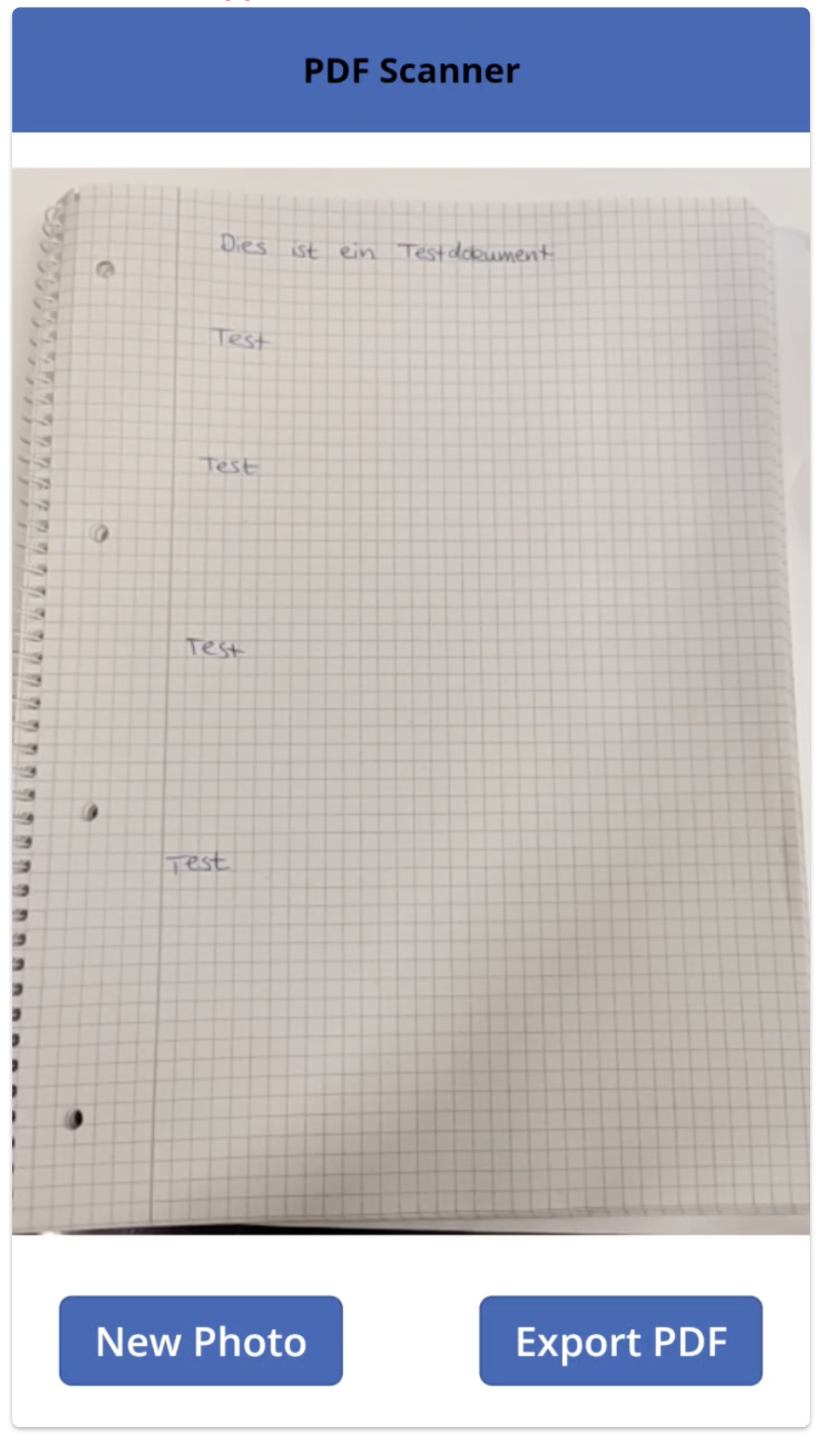 PDF Scanner
Dies ist ein Testdokument
Test
Test
Test
Test
New Photo Export PDF